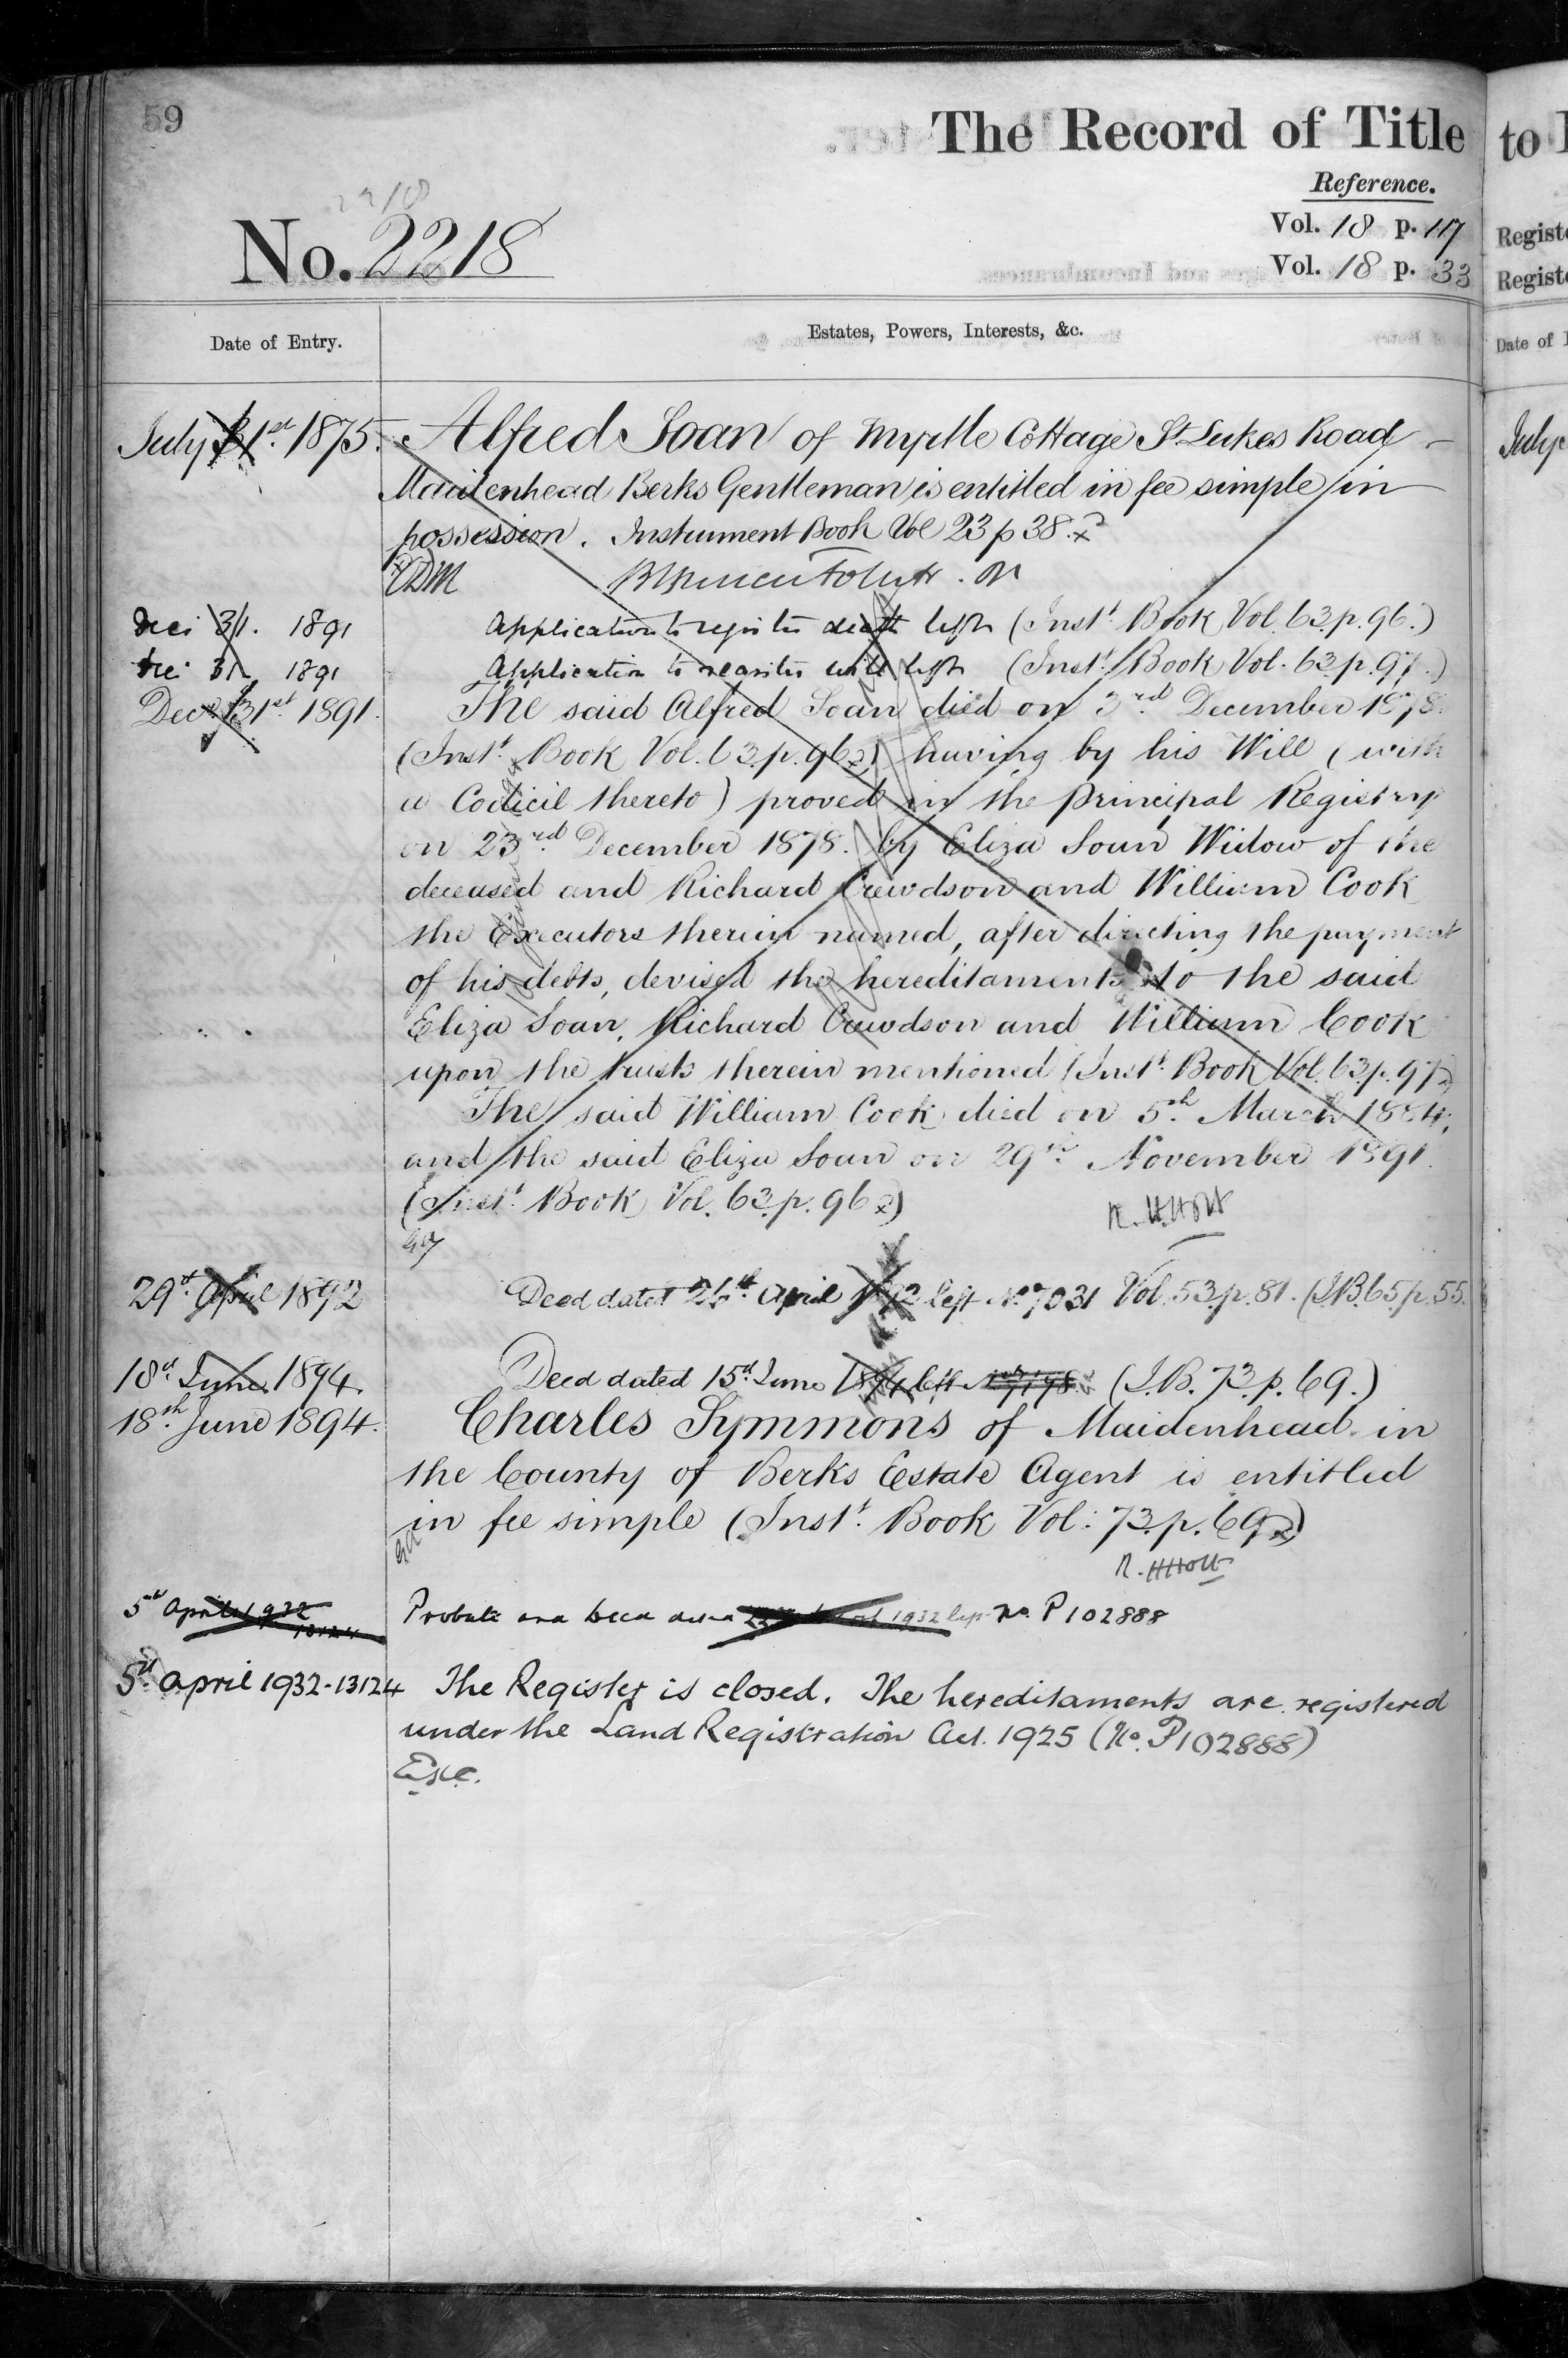 59
The Record of Title
Reference.
No. 2218
Vol. 18 p. 117
Vol. 18 p. 33
Date of Entry.
Estates, Powers, Interests, &c.
July 31st 1875. Alfred Soan of Myrtle Cottage St. Lukes Road
Maidenhead Berks Gentleman is entitled in fee simple in
possession. Instrument Book Vol 23 p 38.
Dec 31. 1891 Application to register death left (Inst.t Book Vol. 63. p. 96.)
Dec 31 1891 Application to register will left (Inst.t Book Vol. 63. p. 97.)
Dec 31st 1891. The said Alfred Soan died on 3rd December 1878.
(Inst.t Book Vol. 63. p. 96) having by his Will (with
a Codicil thereto) proved in the Principal Registry
on 23rd December 1878. by Eliza Soan Widow of the
deceased and Richard Crewdson and William Cook
the Executors therein named, after directing the payment
of his debts, devised the hereditaments to the said
Eliza Soan, Richard Crewdson and William Cook
upon the trusts therein mentioned (Inst.t Book Vol. 63. p. 97)
The said William Cook died on 5th March 1884,
and the said Eliza Soan on 29th November 1891.
(Inst.t Book Vol. 63. p. 96)
R. H. Holt
29th April 1892 Deed dated April 1892 left No. 7031 Vol. 53. p. 81. (I.B. 65. p. 55.
18th June 1894. Deed dated 15th June 1894 left (I.B. 73. p. 69.)
18th June 1894. Charles Symmons of Maidenhead in
the County of Berks Estate Agent is entitled
in fee simple (Inst.t Book Vol: 73. p. 69)
R. H. Holt
5th April 1932 13124 Probate and Deed dated 1932 left No. P102888
5th April 1932-13124 The Register is closed. The hereditaments are registered
under the Land Registration Act. 1925 (No. P102888)
to
Regist
Regist
Date of
July